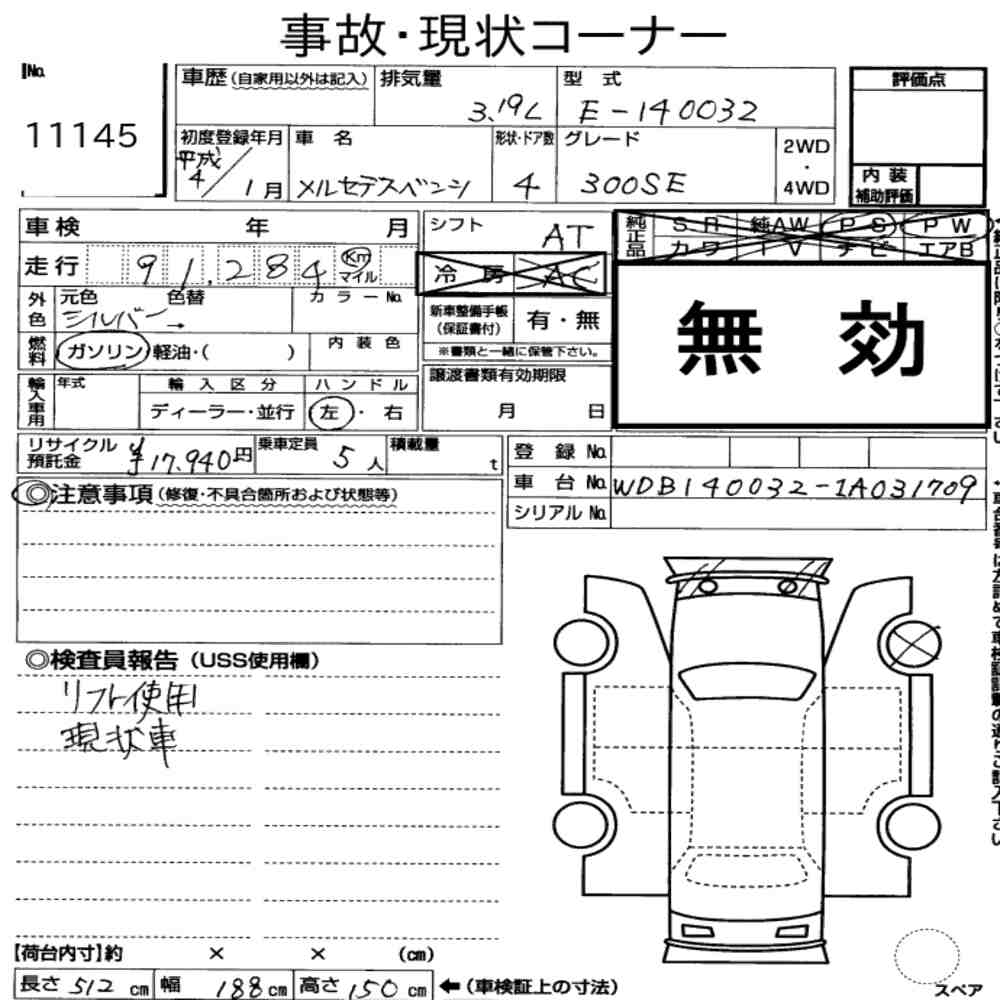 事故・現状コーナー
No.
11145
車歴(自家用以外は記入)
排気量
3.19L
型 式
E-140032
評価点
初度登録年月
平成
4/1月
車 名
メルセデスベンツ
形状・ドア数
4
グレード
300SE
2WD
・
4WD
内 装
補助評価
車検 年 月
シフト
AT
純正品
S R 純AW P S P W
カ ワ T V ナ ビ エアB
走行 91,284 Km
マイル
冷 房 AC
外色
元色 色替
シルバー→
カ ラ ー No.
新車整備手帳
(保証書付)
有・無
※書類と一緒に保管下さい。
無 効
燃料
ガソリン・軽油・( )
内 装 色
輸入車用
年式
輸 入 区 分
ディーラー・並行
ハ ン ド ル
左・右
譲渡書類有効期限
月 日
リサイクル
預託金
¥17,940円
乗車定員
5人
積載量
t
登 録 No.
車 台 No.
WDB140032-1A031709
シリアル No.
◎注意事項(修復・不具合箇所および状態等)
◎検査員報告(USS使用欄)
リフト使用
現状車
【荷台内寸】約 × × (cm)
長さ 512 cm 幅 188 cm 高さ 150 cm ←(車検証上の寸法)
スペア